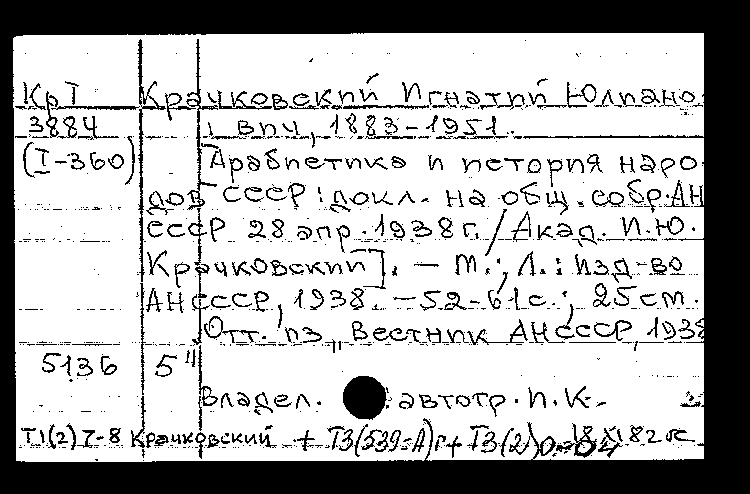 КрI Крачковский Игнатий Юлиано-
3884 вич, 1883-1951.
(I-360) [Арабистика и история наро-
дов СССР: докл. на общ. собр. АН
СССР 28 апр. 1938 г. / Акад. И.Ю.
Крачковский]. — М.; Л.: Изд-во
АН СССР, 1938. — 52-61 с.; 25 см.
Отт. из "Вестник АН СССР, 1938
5136 5"
Владел. автогр. И.К-
Т1(2)7-8 Крачковский + Т3(539=А)г+ Т3(2)